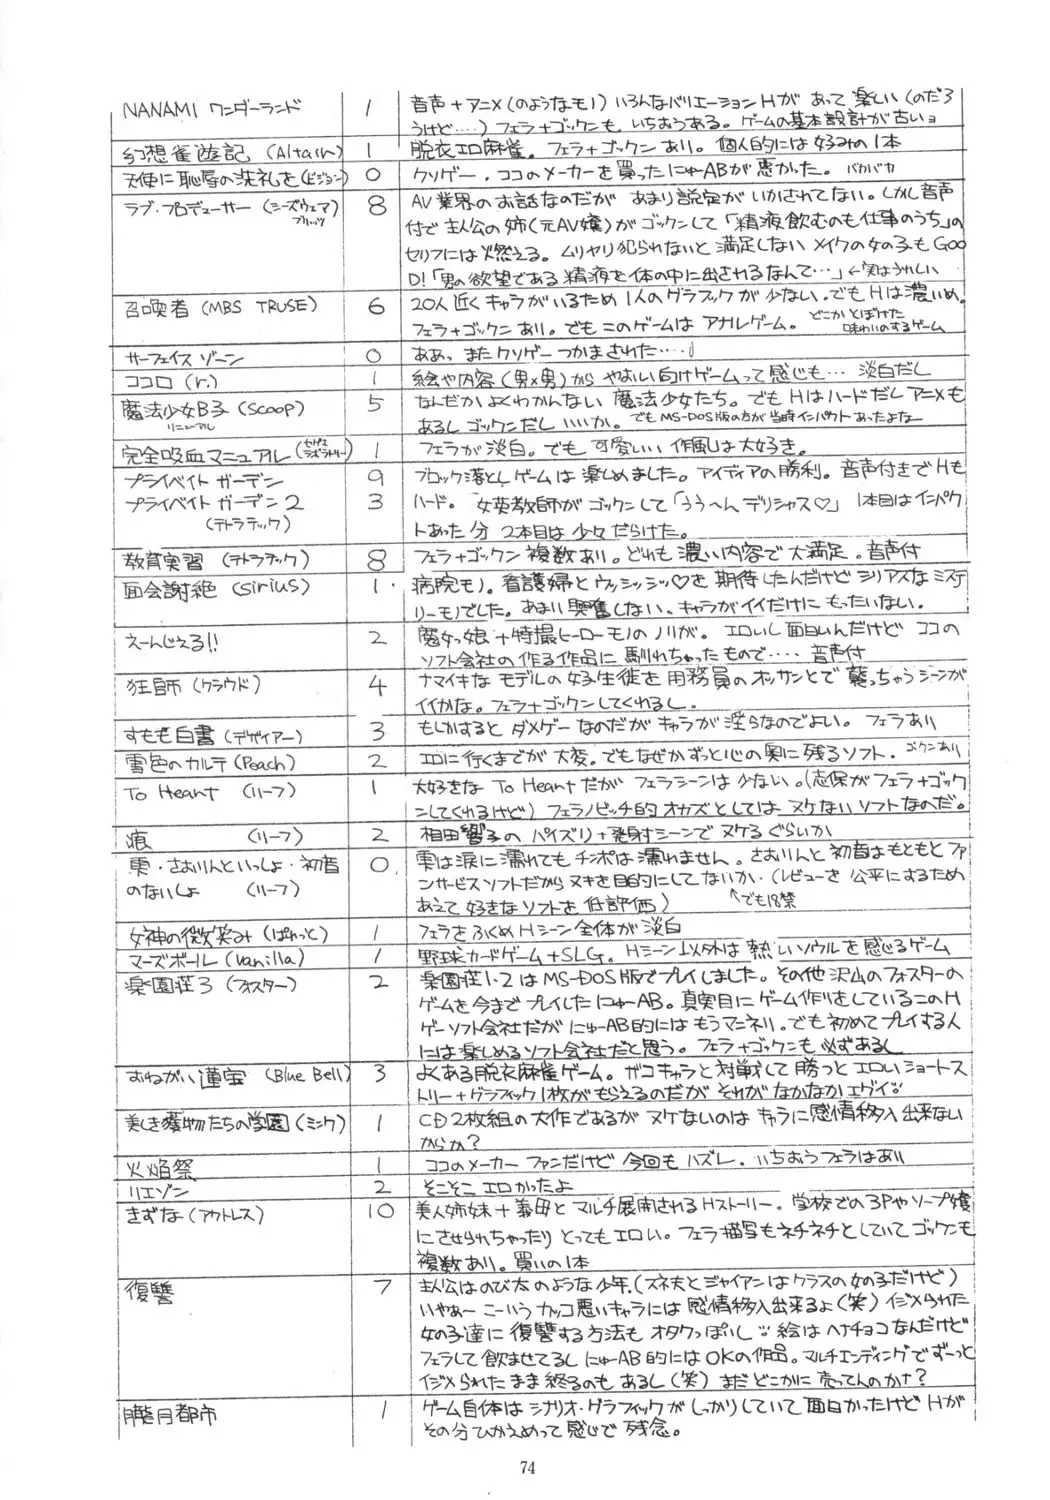 NANAMI ワンダーランド 1 音声+アニメ(のようなモノ) いろんなバリエーションHが あって 楽しい (のだろ
うけど‥‥) フェラ+ゴックンも いちおうある。ゲームの基本設計が古いヨ
幻想雀遊記 (Altair) 1 脱衣エロ麻雀。フェラ+ゴックンあり。個人的には好みの1本
天使に恥辱の洗礼を(ビジョン) 0 クソゲー。ココのメーカーを買ったにゅーABが悪かった。バカバカ
ラブ・プロデューサー (シーズウェア) 8 AV業界のお話なのだが あまり設定がいかされてない。しかし音声
ブリッツ
付で主人公の姉(元AV嬢)がゴックンして「精液飲むのも仕事のうち」の
セリフには燃える。ムリヤリ犯られないと満足しないメイクの女の子もGOO
D!「男の欲望である精液を体の中に出されるなんて…」←実はうれしい
召喚者 (MBS TRUSE) 6 20人近くキャラがいるため1人のグラフィックが少ない。でもHは濃いめ。
フェラ+ゴックンあり。でもこのゲームはアナルゲーム。どこかとぼけた
味わいのするゲーム
サーフェイス ゾーン 0 ああっ またクソゲーつかまされた‥‥
ココロ (r.) 1 絵や内容(男×男)から やおい向けゲームって感じも… 淡白だし
魔法少女B子 (Scoop) 5 なんだかよくわかんない 魔法少女たち。でもHはハードだしアニメも
リニューアル
あるしゴックンだし いいか。でもMS-DOS版の方が当時インパクトあったよなー
完全吸血マニュアル 1 フェラが淡白。でも 可愛いい 作風は大好き。
プライベイト ガーデン 9 ブロック落としゲームは楽しめました。アイディアの勝利。音声付きでHも
プライベイト ガーデン 2 3 ハード。 女英教師が ゴックンして「うう~ん デリシャス♡」 1本目はインパク
(テトラテック) トあった分 2本目は少々だらけた。
教育実習 (テトラテック) 8 フェラ+ゴックン 複数あり。どれも濃い内容で大満足。音声付
面会謝絶 (Sirius) 1 病院モノ。看護婦とウッシッシッ♡を期待したんだけどシリアスなミステ
リーモノでした。あまり興奮しない。キャラがイイだけにもったいない。
えーんじぇる!! 2 魔女っ娘+特撮ヒーローモノのノリが。エロいし面白いんだけど ココの
ソフト会社の作る作品に 馴れちゃったもので‥‥ 音声付
狂師 (クラウド) 4 ナマイキな モデルの女子生徒を 用務員のオッサンとで 襲っちゃうシーンが
イイかな。フェラ+ゴックンしてくれるし。
すもも白書 (デザイアー) 3 もしかすると ダメゲーなのだがキャラが淫らなのでよい。フェラあり
雪色のカルテ (Peach) 2 エロに行くまでが大変。でもなぜかずっと心の奥に残るソフト。ゴックンあり
To Heart (リーフ) 1 大好きな To Heartだが フェラシーンは少ない。(志保がフェラ+ゴック
ンしてくれるけど) フェラノビッチ的オカズとしては ヌケないソフトなのだ。
痕 (リーフ) 2 相田響子の パイズリ+発射シーンで ヌケるぐらいか
雫・さおりんといっしょ・初音 0 雫は涙に濡れてもチンポは濡れません。さおりんと初音はもともとファ
のないしょ (リーフ) ンサービスソフトだからヌキを目的にしてないか。(レビューを公平にするため
あえて好きなソフトを低評価) ↖でも18禁
女神の微笑み (ぱれっと) 1 フェラをふくめHシーン全体が淡白
マーズボール (Vanilla) 1 野球カードゲーム+SLG。Hシーン以外は熱いソウルを感じるゲーム
楽園荘3 (フォスター) 2 楽園荘1・2はMS-DOS版でプレイしました。その他沢山のフォスターの
ゲームを今までプレイしたにゅーAB。真実目にゲーム作りをしているこのH
ゲーソフト会社だがにゅーAB的にはもうマンネリ。でも初めてプレイする人
には楽しめるソフト会社だと思う。フェラ+ゴックンも必ずあるし
おねがい蓮宝 (Blue Bell) 3 よくある脱衣麻雀ゲーム。ザコキャラと対戦して勝つとエロいショートス
トリー+グラフィック1枚がもらえるのだがそれがなかなかエグイ
美しき獲物たちの学園 (ミンク) 1 CD2枚組の大作であるが ヌケないのは キャラに感情移入出来ない
からか?
火焔祭 1 ココのメーカーファンだけど 今回もハズレ。いちおうフェラはあり
リエゾン 2 そこそこ エロかったよ
きずな (アウトレス) 10 美人姉妹+義母とマルチ展開されるHストーリー。学校での3Pやソープ嬢
にさせられちゃったりとってもエロい。フェラ描写もネチネチとしていてゴックンも
複数あり。買いの1本
復讐 7 主人公はのび太のような少年。(スネ夫とジャイアンはクラスの女の子だけど)
いやあ~ こーいうカッコ悪いキャラには感情移入出来るよ(笑) イジメられた
女の子達に復讐する方法も オタクっぽいし 絵はヘナチョコなんだけど
フェラして飲ませてるし にゅーAB的にはOKの作品。マルチエンディングでずーっと
イジメられたまま終るのもあるし(笑) まだどこかに売ってんのかナ?
朧月都市 1 ゲーム自体はシナリオ・グラフィックがしっかりしていて 面白かったけどHが
その分ひかえめって感じで残念。
74